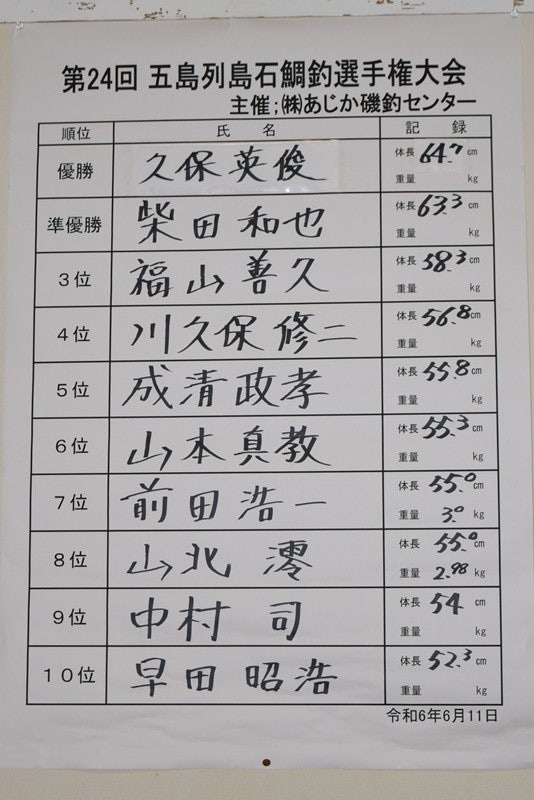 第24回 五島列島石鯛釣選手権大会
主催；㈱あじか磯釣センター
順位 氏 名 記 録
優勝 久保英俊 体長 64.7 cm
重量 kg
準優勝 柴田和也 体長 63.3 cm
重量 kg
3位 福山善久 体長 58.3 cm
重量 kg
4位 川久保修二 体長 56.8 cm
重量 kg
5位 成清政孝 体長 55.8 cm
重量 kg
6位 山本真教 体長 55.3 cm
重量 kg
7位 前田浩一 体長 55.0 cm
重量 3.0 kg
8位 山北 澪 体長 55.0 cm
重量 2.98 kg
9位 中村 司 体長 54 cm
重量 kg
10位 早田昭浩 体長 52.3 cm
重量 kg
令和6年6月11日